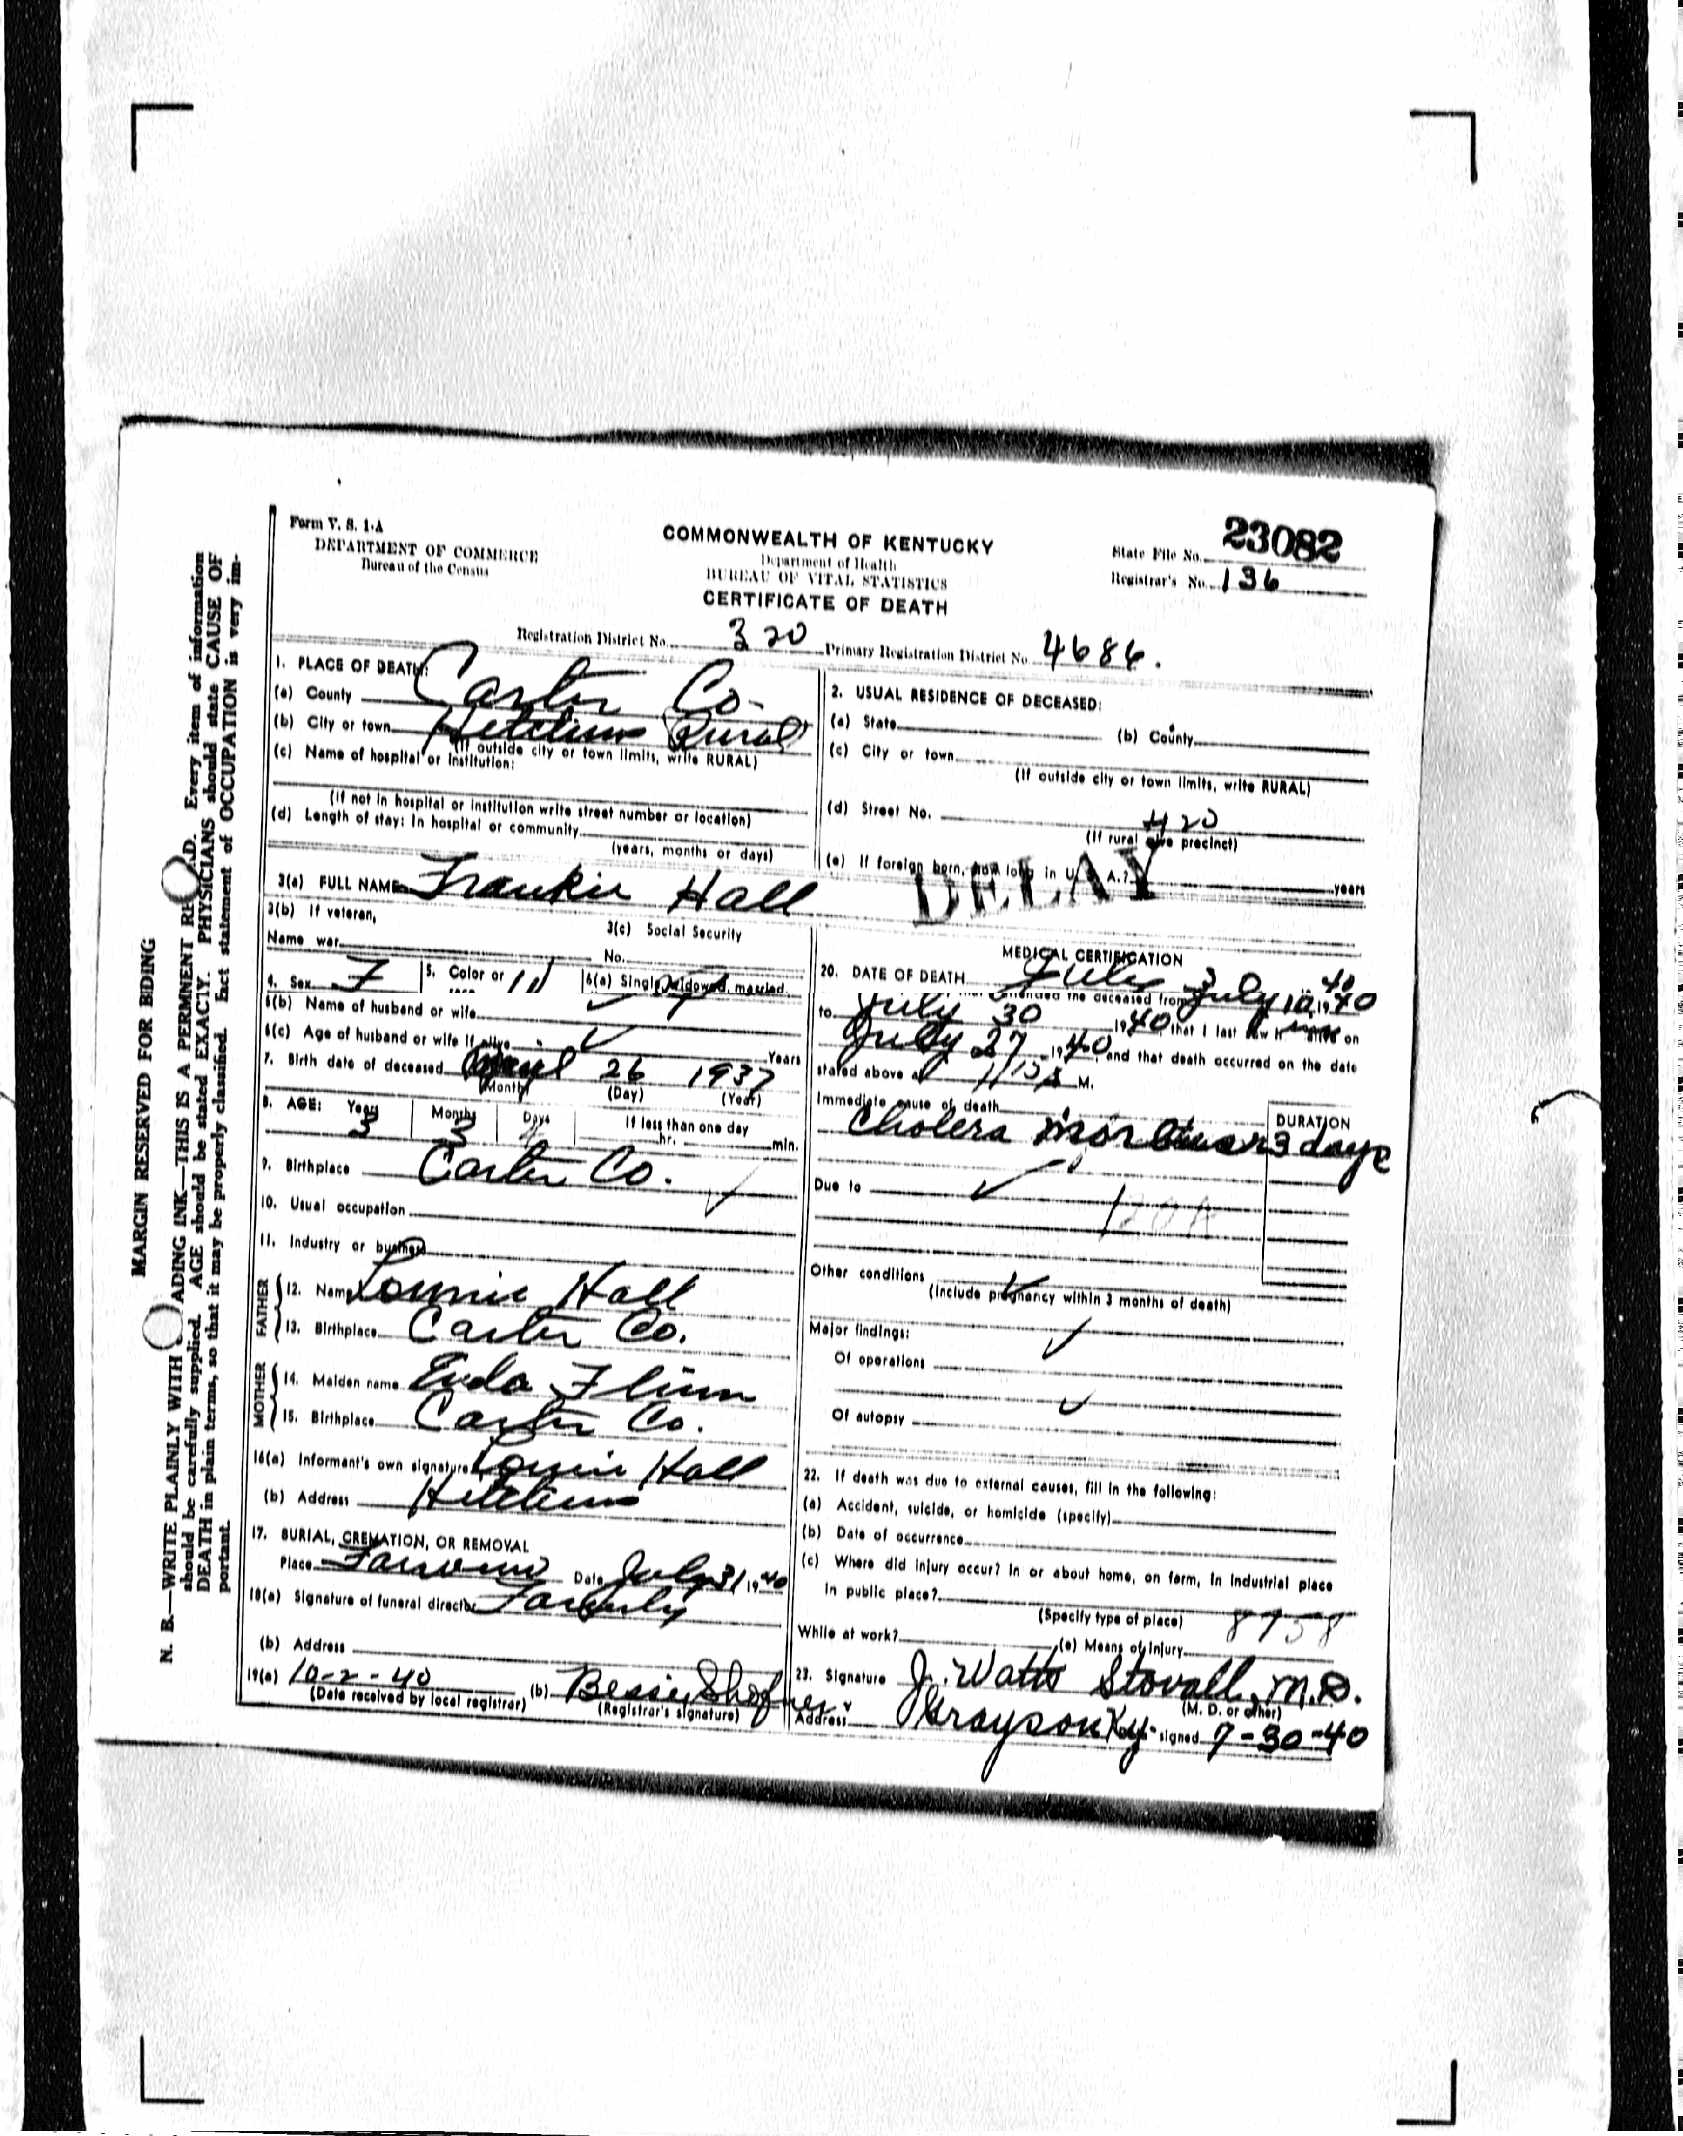 Form V. S. 1-A
DEPARTMENT OF COMMERCE
Bureau of the Census
COMMONWEALTH OF KENTUCKY
Department of Health
BUREAU OF VITAL STATISTICS
CERTIFICATE OF DEATH
State File No. 23082
Registrar's No. 136
Registration District No. 320 Primary Registration District No. 4686.
1. PLACE OF DEATH:
(a) County Carter Co.
(b) City or town Hitchins Rural
(If outside city or town limits, write RURAL)
(c) Name of hospital or institution:
(If not in hospital or institution write street number or location)
(d) Length of stay: In hospital or community
(years, months or days)
2. USUAL RESIDENCE OF DECEASED:
(a) State (b) County
(c) City or town
(If outside city or town limits, write RURAL)
(d) Street No. 420
(If rural give precinct)
(e) If foreign born, how long in U. S. A.? years
DELAY
3(a) FULL NAME Frankie Hall
3(b) If veteran,
Name war
3(c) Social Security
No.
4. Sex F 5. Color or race W 6(a) Single, widowed, married
6(b) Name of husband or wife
6(c) Age of husband or wife if alive Years
7. Birth date of deceased April 26 1937
(Month) (Day) (Year)
8. AGE: Years Months Days If less than one day
3 3 4 hr. min.
9. Birthplace Carter Co.
10. Usual occupation
11. Industry or business
FATHER
12. Name Lonnie Hall
13. Birthplace Carter Co.
MOTHER
14. Maiden name Euda Flinn
15. Birthplace Carter Co.
16(a) Informant's own signature Lonnie Hall
(b) Address Hitchins
17. BURIAL, CREMATION, OR REMOVAL
Place Date July 31 1940
18(a) Signature of funeral director Family
(b) Address
19(a) 10-2-40 (b) Bessie Shofner
(Date received by local registrar) (Registrar's signature)
MEDICAL CERTIFICATION
20. DATE OF DEATH July 3 40
attended the deceased from July 10, 1940
to July 30 1940, that I last saw h alive on
July 27 1940, and that death occurred on the date
stated above at 1/15 A M.
Immediate cause of death DURATION
Cholera morbus 3 days
Due to
120A
Other conditions
(Include pregnancy within 3 months of death)
Major findings:
Of operations
Of autopsy
22. If death was due to external causes, fill in the following:
(a) Accident, suicide, or homicide (specify)
(b) Date of occurrence
(c) Where did injury occur? In or about home, on farm, in industrial place
in public place?
(Specify type of place) 8758
While at work? (e) Means of injury
23. Signature J. Watts Stovall, M.D.
(M. D. or other)
Address Grayson Ky. signed 7-30-40
MARGIN RESERVED FOR BIDING
N. B.—WRITE PLAINLY WITH ADING INK—THIS IS A PERMNENT RE AD. Every item of information
should be carefully supplied. AGE should be stated EXACTY. PHYSICIANS should state CAUSE OF
DEATH in plain terms, so that it may be properly classified. Exct statement of OCCUPATION is very im-
portant.